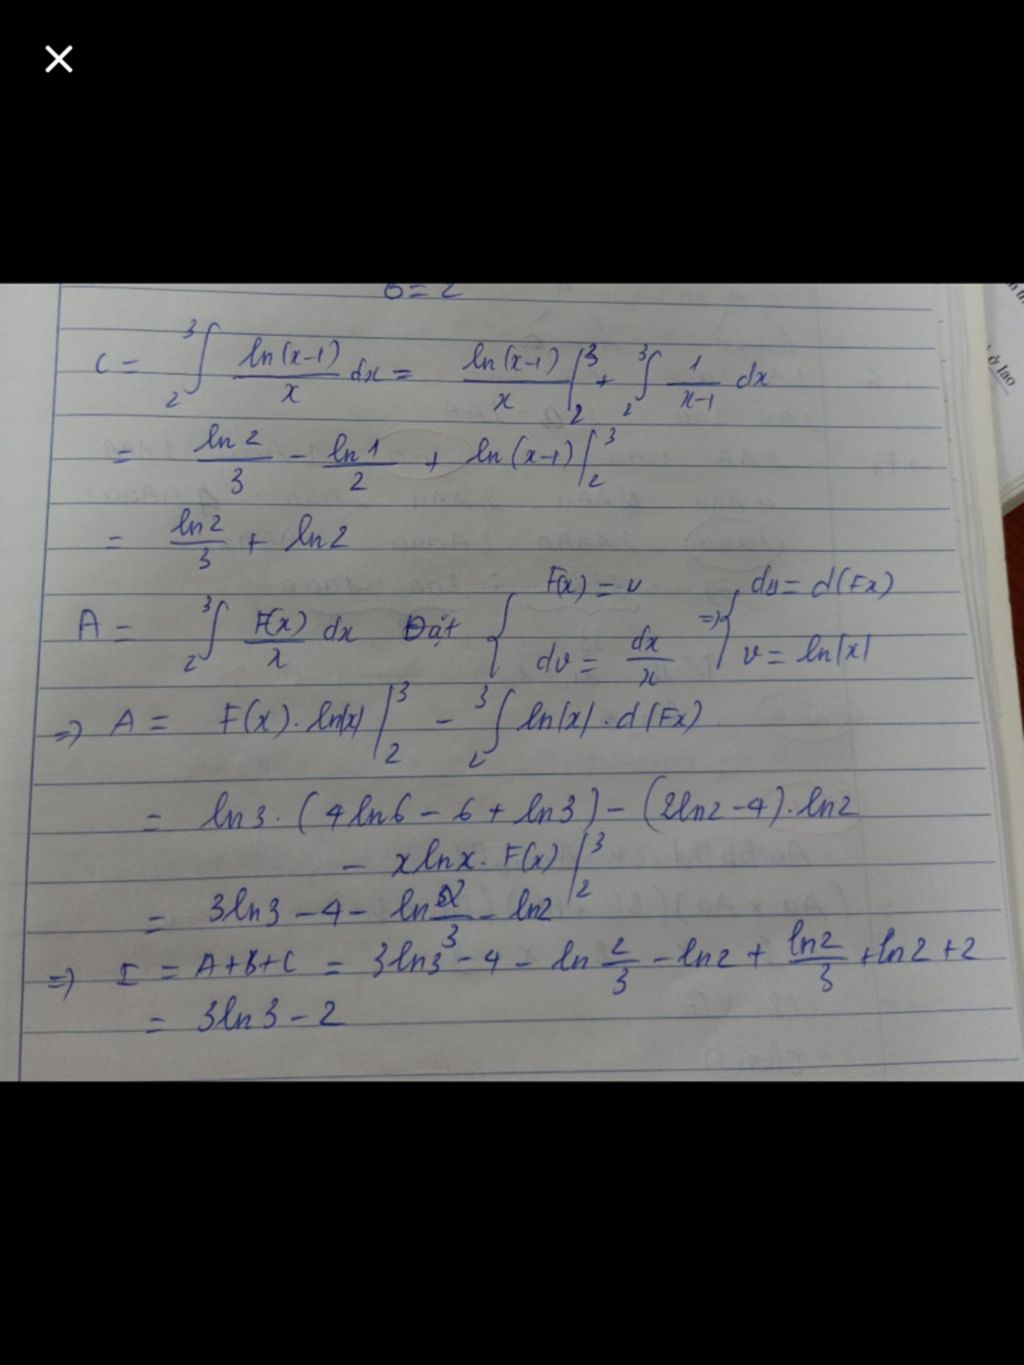 C = ₂∫³ ln(x-1)/x dx = ln(x-1)/x |₂³ + ₂∫³ 1/(x-1) dx
= ln2/3 - ln1/2 + ln(x-1) |₂³
= ln2/3 + ln2
A = ₂∫³ F(x)/x dx Đặt { F(x) = u dv = dx/x => { du = d(Fx) v = ln|x|
=> A = F(x). ln|x| |₂³ - ₂∫³ ln|x| . d(Fx)
= ln3. (4ln6 - 6 + ln3) - (2ln2 - 4). ln2
- xlnx. F(x) |₂³
= 3ln3 - 4 - ln 2/3 - ln2
=> I = A+B+C = 3ln3 - 4 - ln 2/3 - ln2 + ln2/3 + ln2 + 2
= 3ln3 - 2